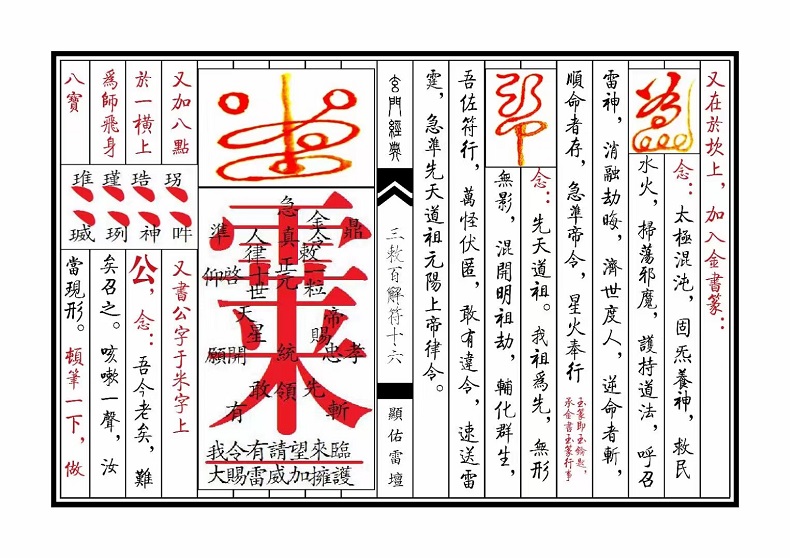 又在於坎上，加入金書篆：
念：太極混沌，固炁養神，救民
水火，掃蕩邪魔，護持道法，呼召
雷神，消融劫晦，濟世度人，逆命者斬，
順命者存，急準帝令，星火奉行
玉篆即玉鑰匙，
承金書玉篆行事
念：先天道祖。我祖爲先，無形
無影，混開明祖劫，輔化群生，
吾佐符行，萬怪伏匿，敢有違令，速送雷
霆，急準先天道祖元陽上帝律令。
玄門經典
三敕百解符十六
顯佑雷壇
急
準 人 真 金 鼎
律 令 敕
仰 啓 十 元 一 粒
世
天 帝
星 賜
願 開 統 忠 孝
敢 領 先
有 斬
我令有請望來臨
大賜雷威加擁護
又加八點
於一橫上
爲師飛身
八寶
琟 瑾
珋 神 吽
又書公字于米字上
公，念：吾今老矣，難
矣召之。咳嗽一聲，汝
當現形。頓筆一下，做